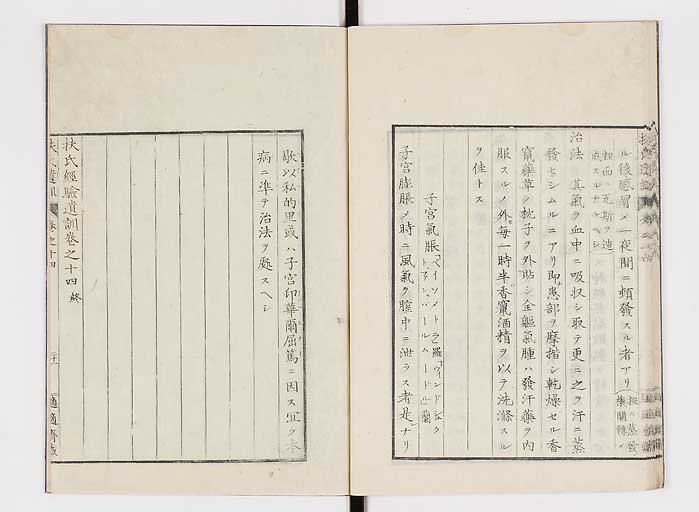 ル後感冒メ一夜間ニ頻發スル者アリ
治法 其氣ヲ血中ニ吸収シ取テ更ニ之ヲ汗ニ蒸
發セシムルニアリ即患部ヲ摩擦シ乾燥セル香
竄藥草ノ枕子ヲ外貼シ全軀氣腫ハ發汗藥ヲ内
服スルノ外毎一時半香竄酒精ヲ以テ洗滌スル
ヲ佳トス
子宮氣脹
子宮膨脹メ時ニ風氣ヲ腟中ニ泄ラス者是ナリ
歇以私的里或ハ子宮卬華爾屈篤ニ因ス宜ク本
病ニ準テ治法ヲ處スヘシ
扶氏經驗遺訓巻之十四 終
扶氏遺訓 巻之十四
適適齋藏